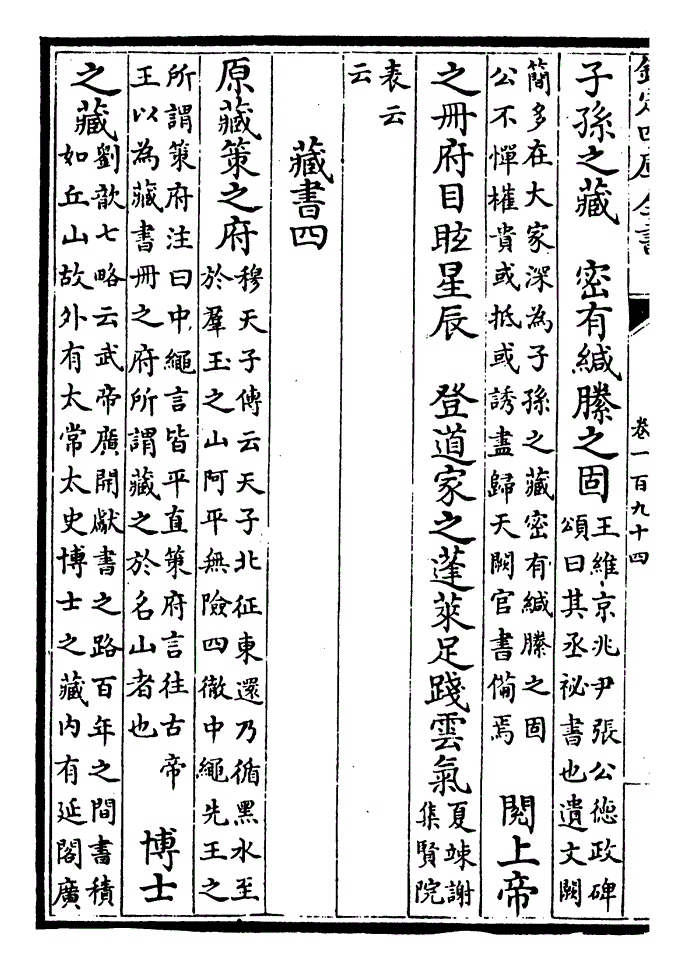 欽定四庫全書
卷一百九十四
子孫之藏　密有緘縢之固
王維京兆尹張公德政碑
頌曰其丞祕書也遺文闕
簡多在大家深為子孫之藏密有緘縢之固
公不憚權貴或抵或誘盡歸天閣官書備焉
閱上帝
之冊府目眩星辰　登道家之蓬萊足踐雲氣
夏竦謝
集賢院
表云
云
藏書四
原藏策之府
穆天子傳云天子北征東還乃循黑水至
於羣玉之山阿平無險四徹中繩先王之
所謂策府注曰中繩言皆平直策府言往古帝
王以為藏書冊之府所謂藏之於名山者也
博士
之藏
劉歆七略云武帝廣開獻書之路百年之間書積
如丘山故外有太常太史博士之藏内有延閣廣